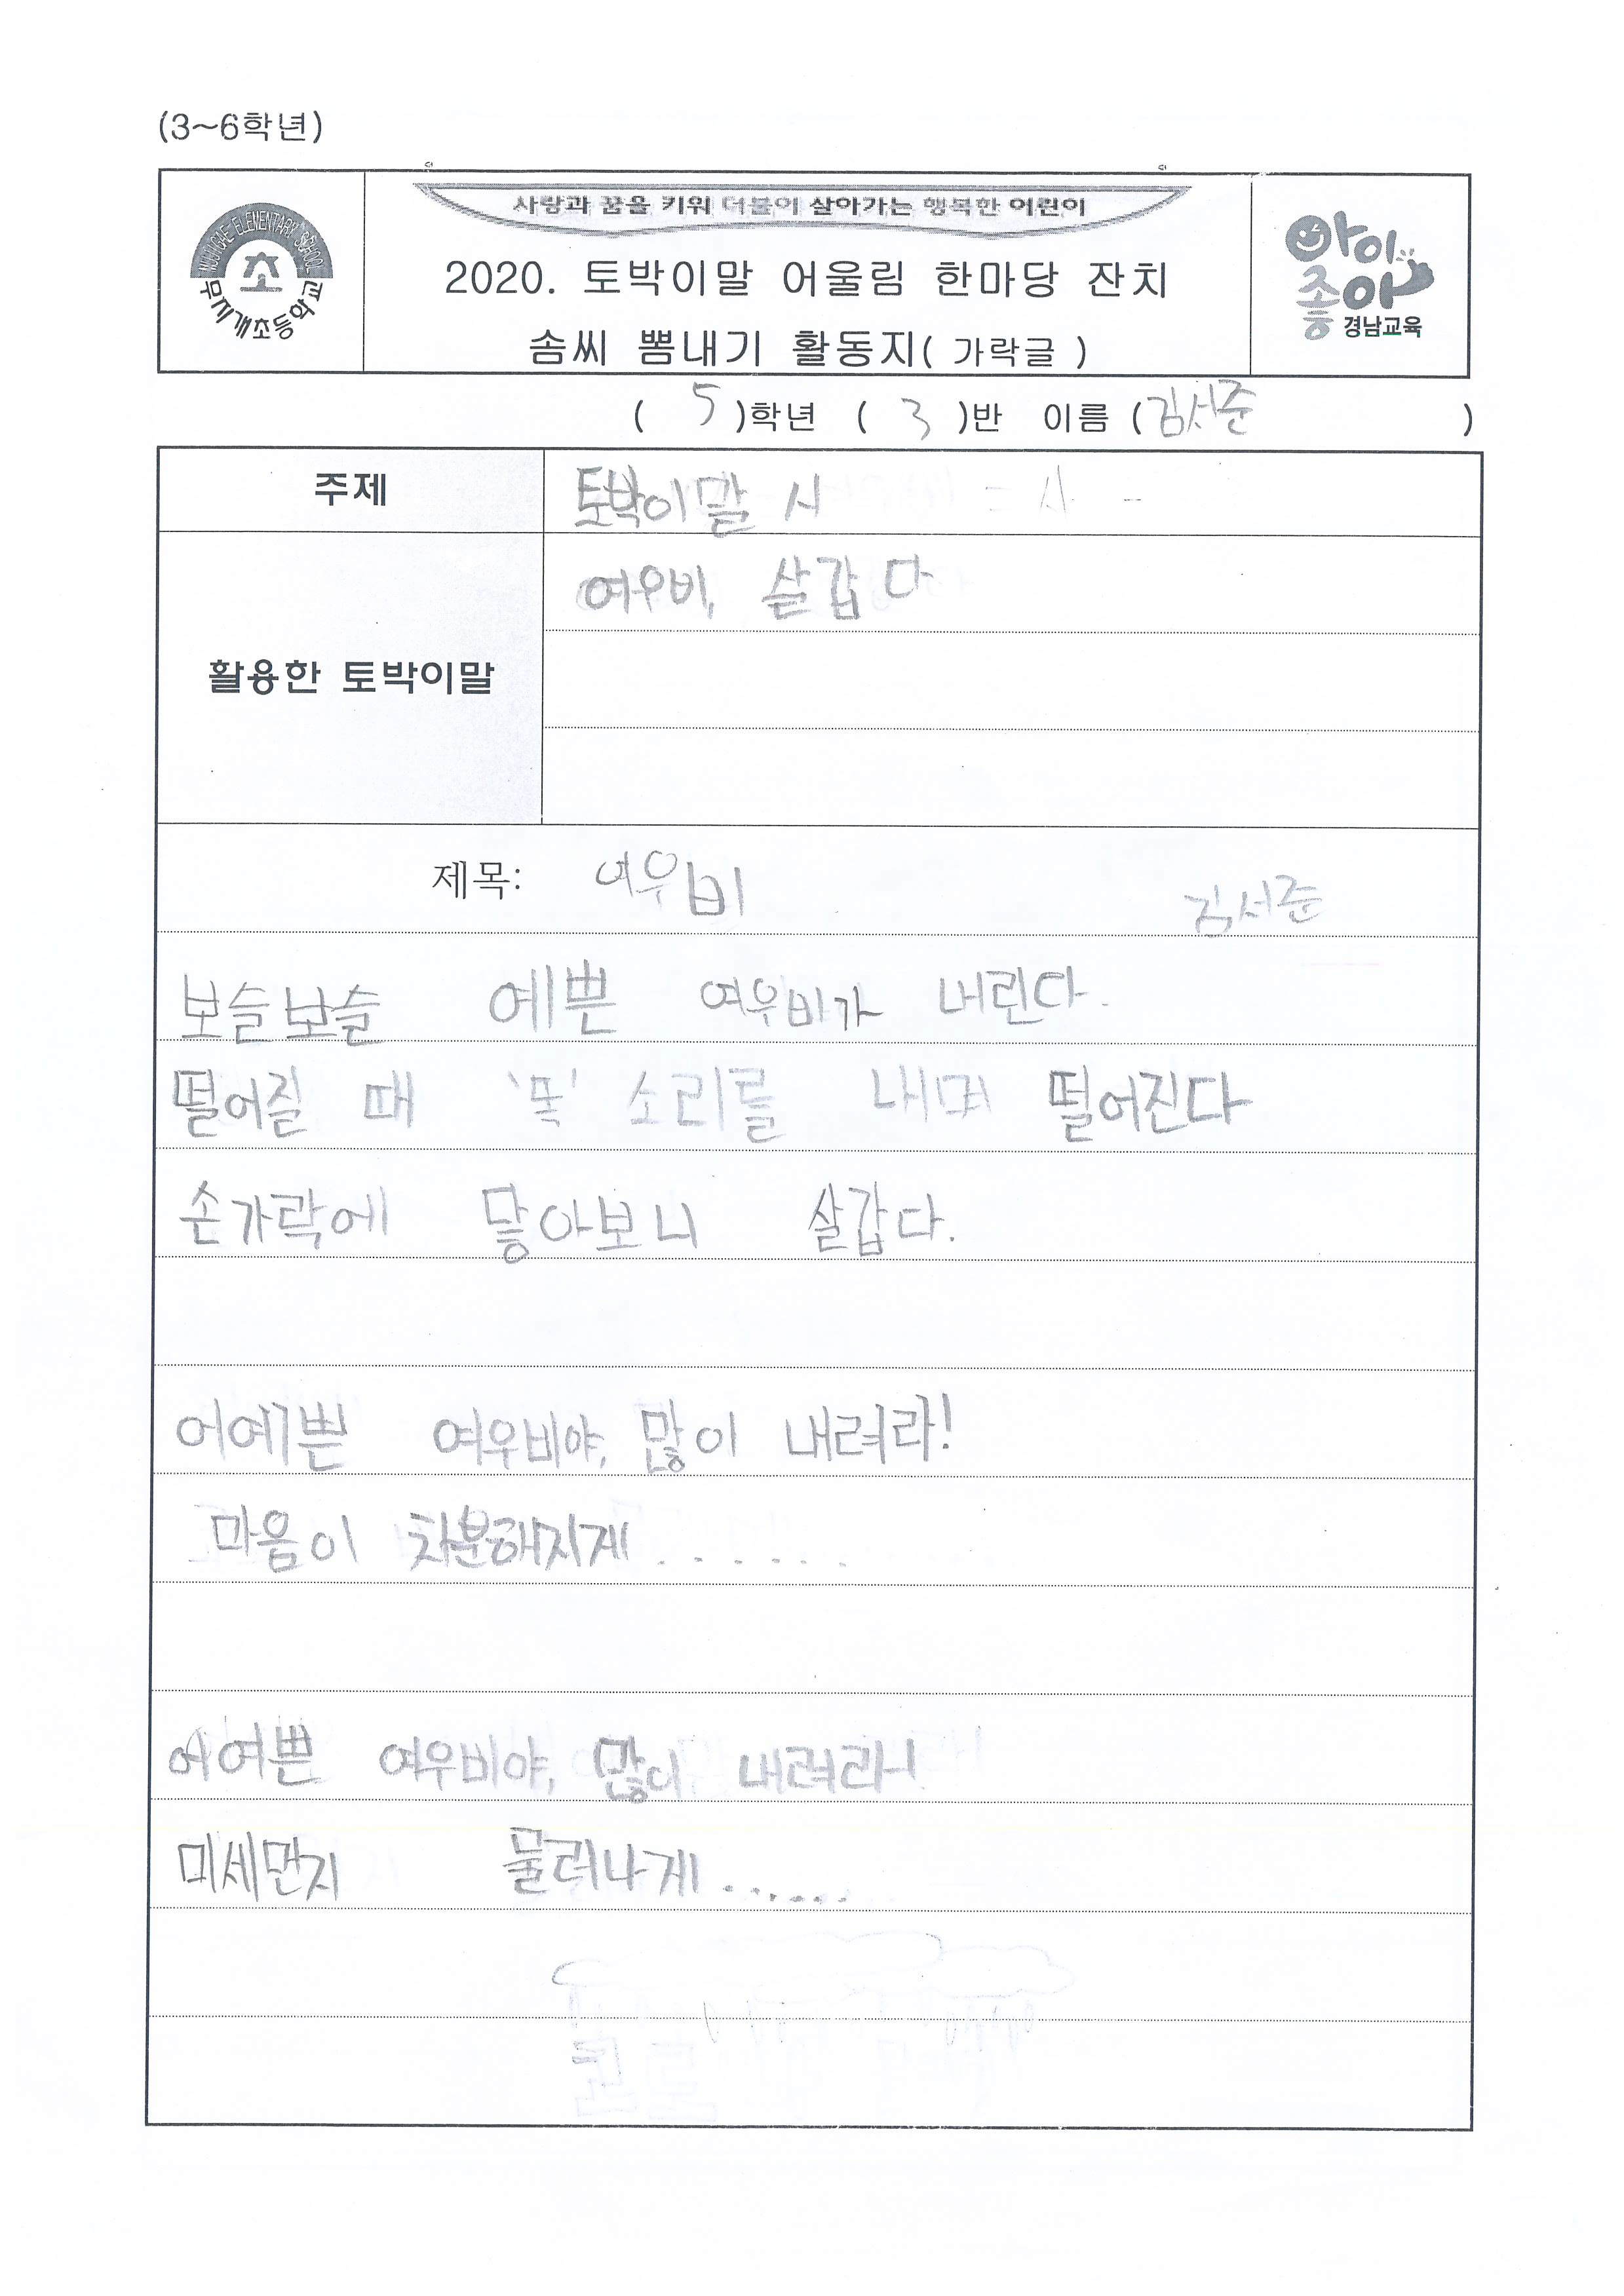 (3~6학년)
사랑과 꿈을 키워 더불어 살아가는 행복한 어린이
MUJIGAE ELEMENTARY SCHOOL
초
무지개초등학교
2020. 토박이말 어울림 한마당 잔치
솜씨 뽐내기 활동지( 가락글 )
아이좋아
경남교육
( 5 )학년 ( 3 )반 이름 (김서준 )
주제 토박이말 시
활용한 토박이말 여우비, 살갑다
제목: 여우비 김서준
보슬보슬 예쁜 여우비가 내린다.
떨어질 때 '똑' 소리를 내며 떨어진다
손가락에 닿아보니 살갑다.
어예쁜 여우비야, 많이 내려라!
마음이 차분해지게.......
어여쁜 여우비야, 많이 내려라!
미세먼지 물러나게......